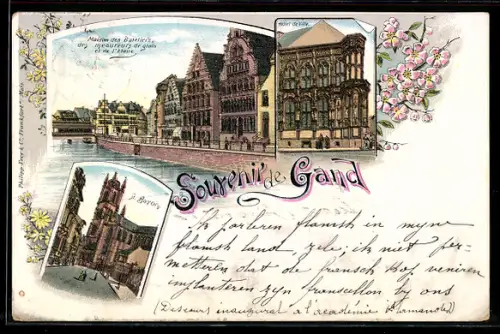 Maison des Bateliers,
des mesureurs de grain
et de l'Etape.
Hôtel de Ville.
Philipp Frey & Co., Frankfurt a. Main
St. Bavon.
Souvenir de Gand
Ik parleren flamsh in myne
flamsh land, zele; ik niet per-
metteren dat de fransch Hof veniren
implanteren zyn franscillon by ons
(Discours inaugural à l'académie flamande)